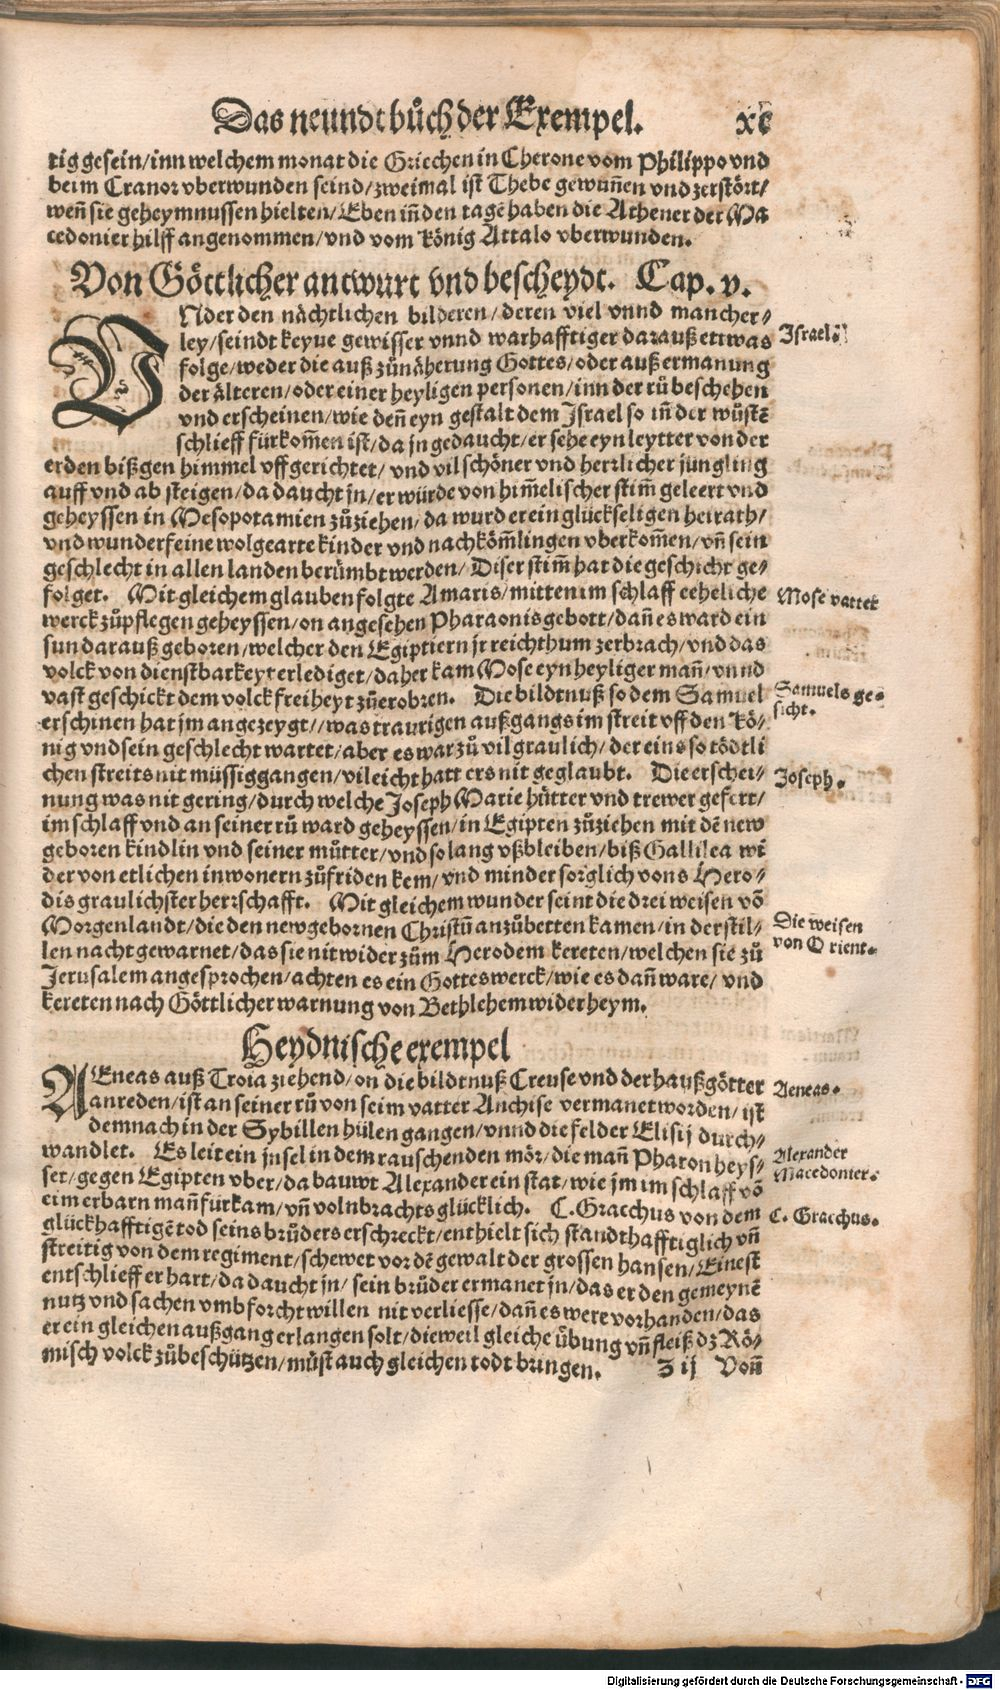 Das neundt bůch der Exempel. xc
tig gesein/inn welchem monat die Griechen in Cherone vom Philippo vnd
beim Cranor vberwunden seind/zweimal ist Thebe gewuñen vnd zerstört/
weñ sie geheymnussen hielten/Eben iñ den tagē haben die Athener der Ma
cedonier hilff angenommen/vnd vom König Attalo vberwunden.
Von Göttlicher antwurt vnd bescheydt. Cap. v.
VNder den nächtlichen bilderen/deren viel vnnd mancher⸗
ley/seindt keyne gewisser vnnd warhafftiger darauß ettwas
Israel.
folge/weder die auß zůnäherung Gottes/oder auß ermanung
der älteren/oder einer heyligen personen/inn der rů beschehen
vnd erscheinen/wie deñ eyn gestalt dem Israel so iñ der wůstē
schlieff fürkom̄en ist/da jn gedaucht/er sehe eyn leytter von der
erden bißgen himmel vffgerichtet/vnd vil schöner vnd herrlicher jungling
auff vnd ab steigen/da daucht jn/er würde von him̄elischer stim̄ geleert vnd
geheyssen in Mesopotamien zůziehen/da wurd er ein glückseligen heirath/
vnd wunder feine wolgearte kinder vnd nachköm̄lingen vberkom̄en/vñ sein
geschlecht in allen landen berümbt werden/Diser stim̄ hat die geschicht ge⸗
folget. Mit gleichem glauben folgte Amaris/mitten im schlaff eeheliche
Mose vatter
werck zůpflegen geheyssen/on angesehen Pharaonis gebott/dañ es ward ein
sun darauß geboren/welcher den Egiptiern jr reichthum zerbrach/vnd das
volck von dienstbarkeyt erlediget/daher kam Mose eyn heyliger mañ/vnnd
vast geschickt dem volck freiheyt zůerobren. Die bildtnuß so dem Samuel
Samuels ge⸗
sicht.
erschinen hat jm angezeygt//was traurigen außgangs im streit vff den Kö⸗
nig vnd sein geschlecht wartet/aber es war zů vil graulich/der eins so tödtli
chen streits nit müssiggangen/vileicht hatt ers nit geglaubt. Die erschei⸗
Joseph.
nung was nit gering/durch welche Joseph Marie hütter vnd trewer gefert/
im schlaff vnd an seiner rů ward geheyssen/in Egipten zůziehen mit dē new
geboren kindlin vnd seiner můtter/vnd so lang vßbleiben/biß Gallilea wi
der von etlichen inwonern zůfriden kem/vnd minder sorglich vons Hero⸗
dis graulichster herrschafft. Mit gleichem wunder seint die drei weisen vō
Morgenlandt/die den newgebornen Christū anzůbetten kamen/in der stil⸗
Die weisen
von Orient.
len nacht gewarnet/das sie nit wider zům Herodem kereten/welchen sie zů
Jerusalem angesprochen/achten es ein Gottes werck/wie es dañ ware/vnd
kereten nach Göttlicher warnung von Bethlehem wider heym.
Heydnische exempel
AEneas auß Troia ziehend/on die bildtnuß Creuse vnd der haußgötter
Aeneas.
anreden/ist an seiner rů von seim vatter Anchise vermanet worden/ist
demnach in der Sybillen hülen gangen/vnnd die felder Elisij durch⸗
wandlet. Es leit ein jnsel in dem rauschenden mör/die mañ Pharon heys⸗
Alexander
Macedonier.
set/gegen Egipten vber/da bauwt Alexander ein stat/wie jm im schlaff vō
eim erbarn mañ fürkam/vñ volnbrachts glücklich. C.Gracchus von dem
C. Gracchus.
glückhafftigē tod seins brůders erschreckt/enthielt sich standthafftiglich vñ
streitig von dem regiment/schewet vor dē gewalt der grossen hansen/Einest
entschlieff er hart/da daucht jn/sein brůder ermanet jn/das er den gemeynē
nutz vnd sachen vmb forcht willen nit verliesse/dañ es were vorhanden/das
er ein gleichen außgang erlangen solt/dieweil gleiche übung vñ fleiß dz Rö⸗
misch volck zůbeschützen/můst auch gleichen todt bringen.
Z ij Voñ
Digitalisierung gefördert durch die Deutsche Forschungsgemeinschaft - DFG